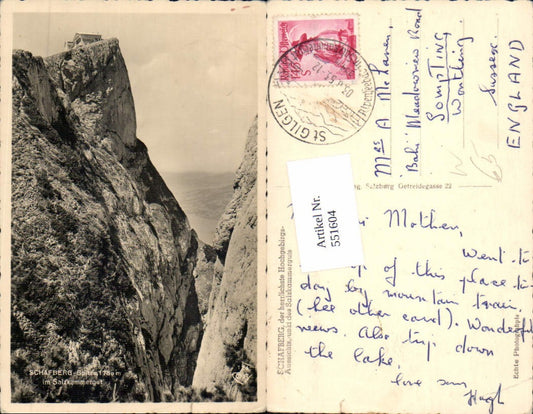 SCHAFBERG-Spitze 1780 m
im Salzkammergut
St GILGEN
Artikel Nr.
551604
Mrs A McLaren,
Meadowview Road
SOMPTING
Worthing
Sussex
ENGLAND
Salzburg Getreidegasse 22
SCHAFBERG, der herrlichste Hochgebirgs-
Aussichtspunkt des Salzkammerguts
Echte Photographie
Mother,
Went to
of this place to-
day by mountain train,
(see other card). Wonderful
views. Also trip down
the lake.
love son
Hugh